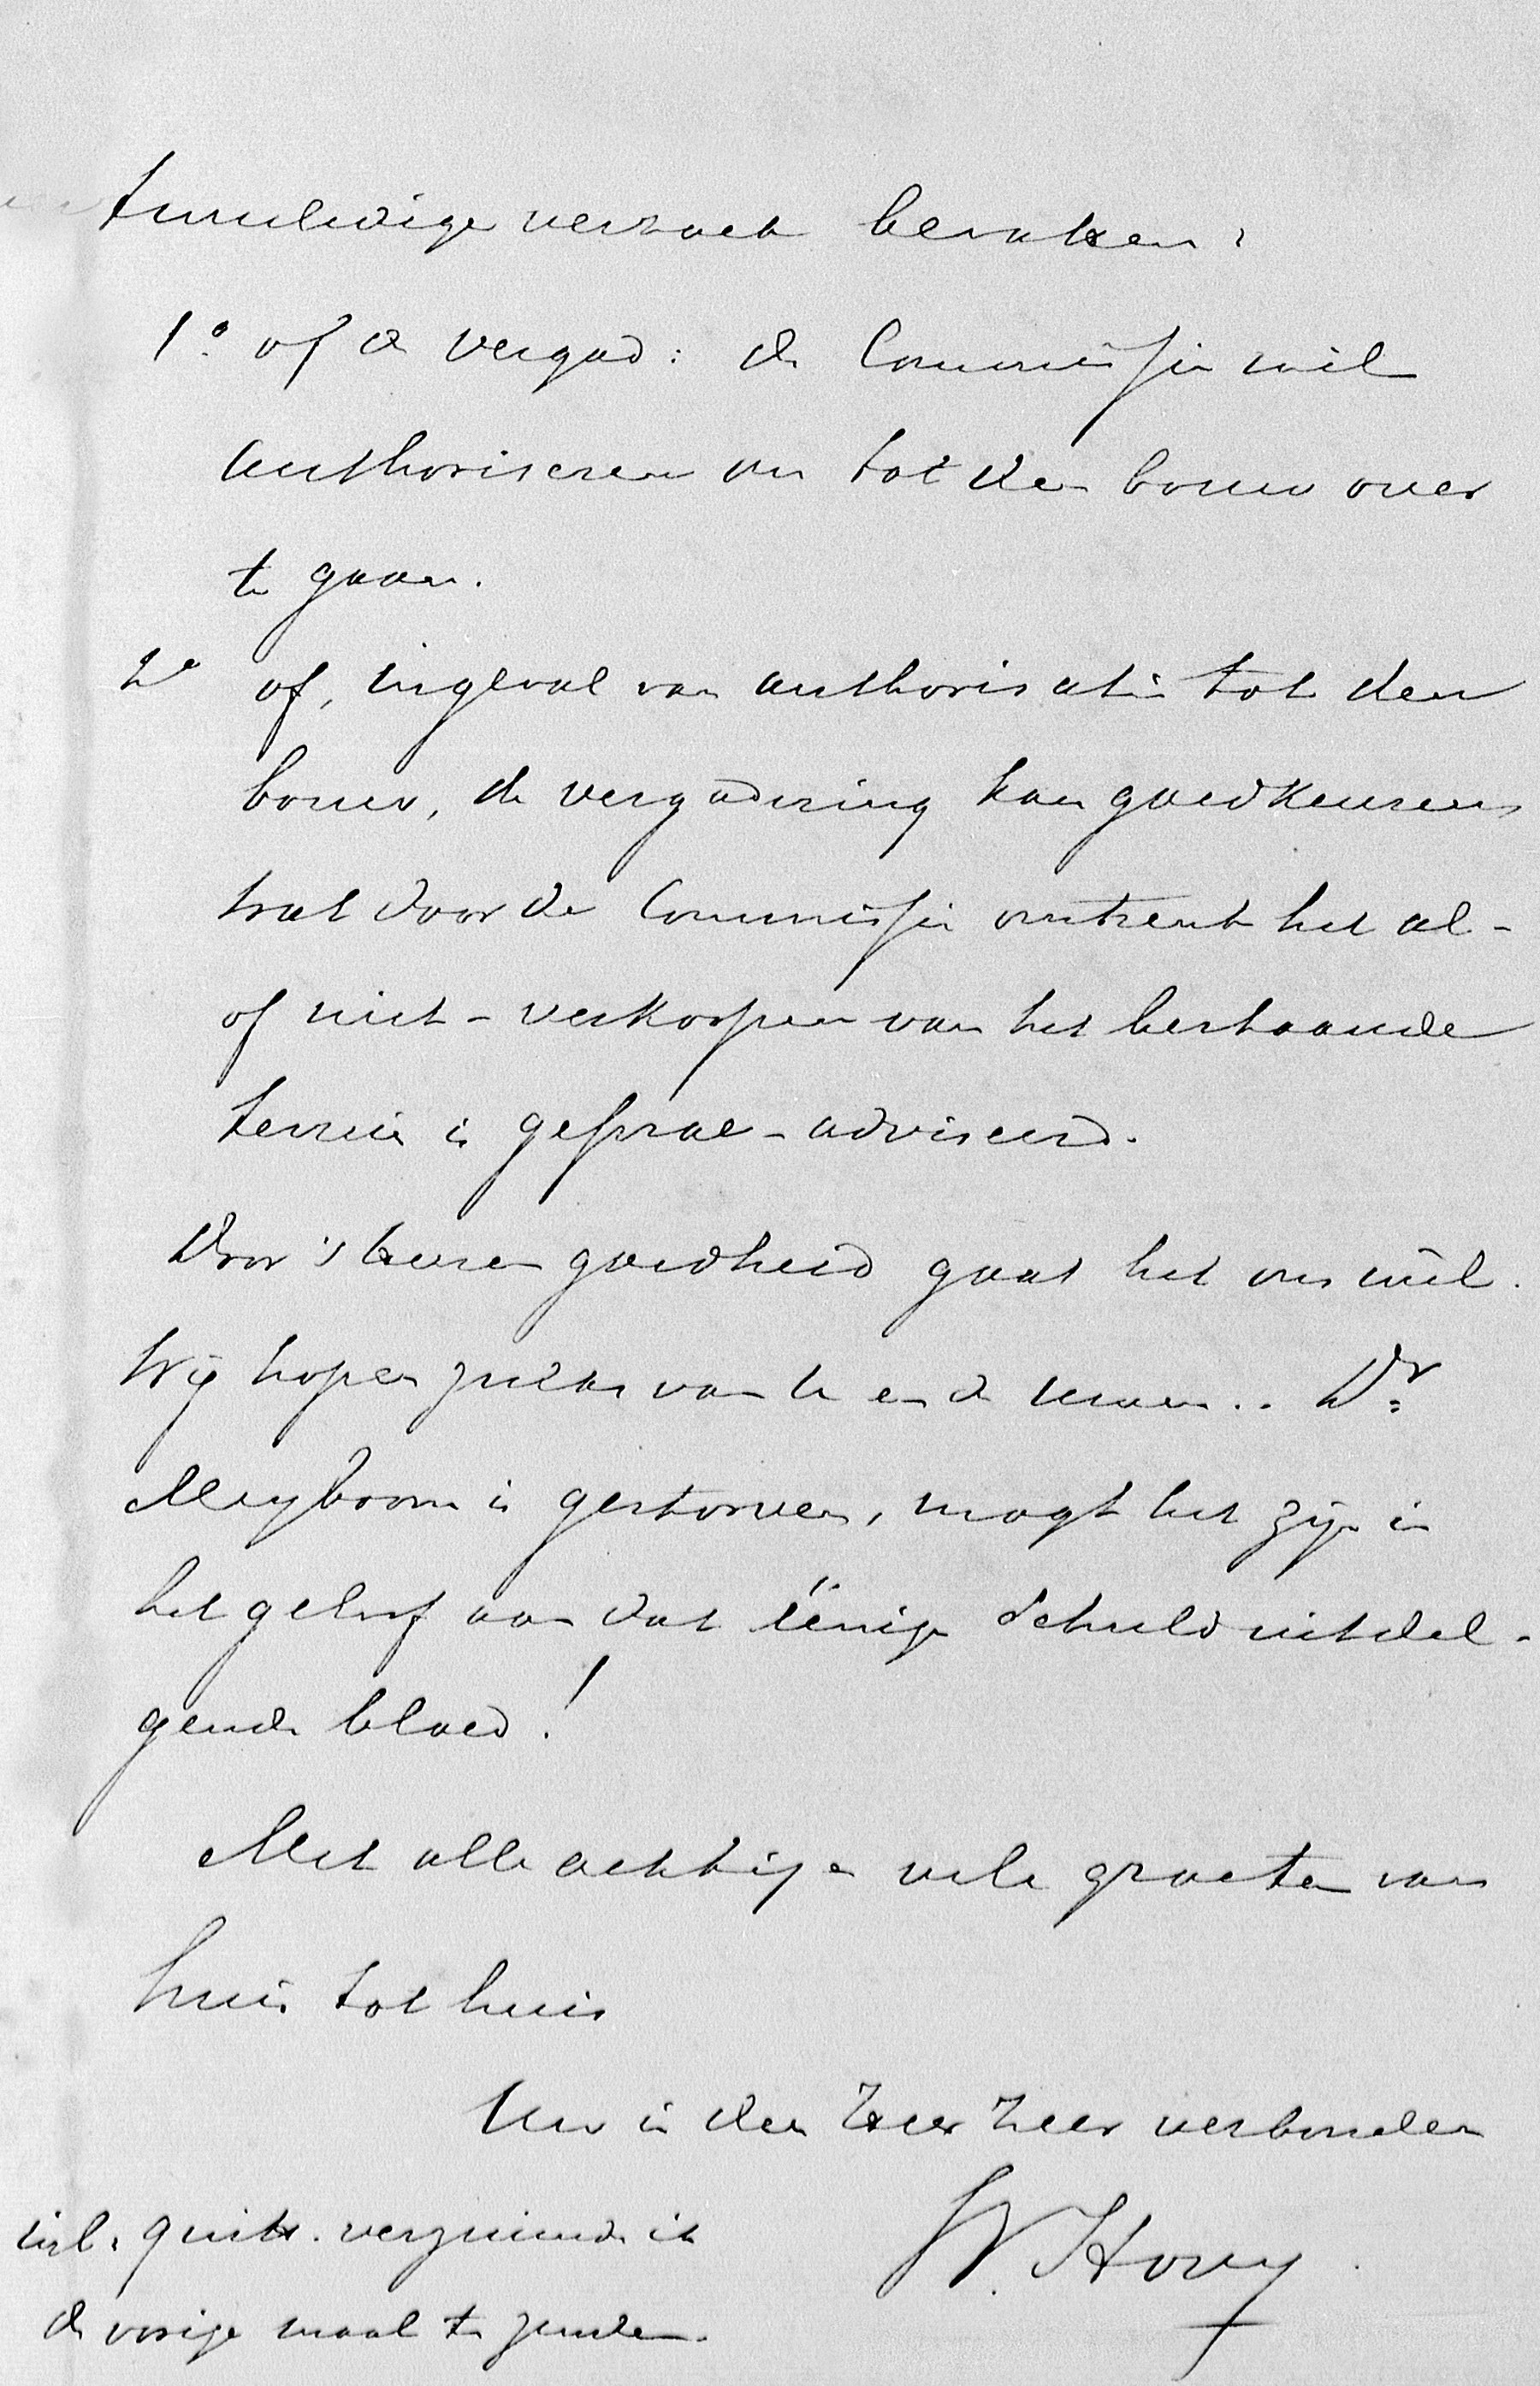 tweeledige verzoek bevatten:
1º of de vergad: de Commissie wil
authoriseren om tot den bouw over
te gaan.
2º of, ingeval van authorisatie tot den
bouw, de vergadering kan goedkeuren
wat door de Commissie omtrent het al-
of niet-verkoopen van het bestaande
terrein is geprae-adviseerd.
Door 's Heeren goedheid gaat het ons wèl.
Wij hopen zulks van U en de uwen.. Dr
Meyboom is gestorven, mogt het zijn in
het geloof aan dat éénige schulduitdel-
gende bloed!
Met alle achting en vele groeten van
huis tot huis
Uw in den Heer zeer verbonden
W. Hovy
inl. quitt. verzuimde ik
de vorige maal te zenden.